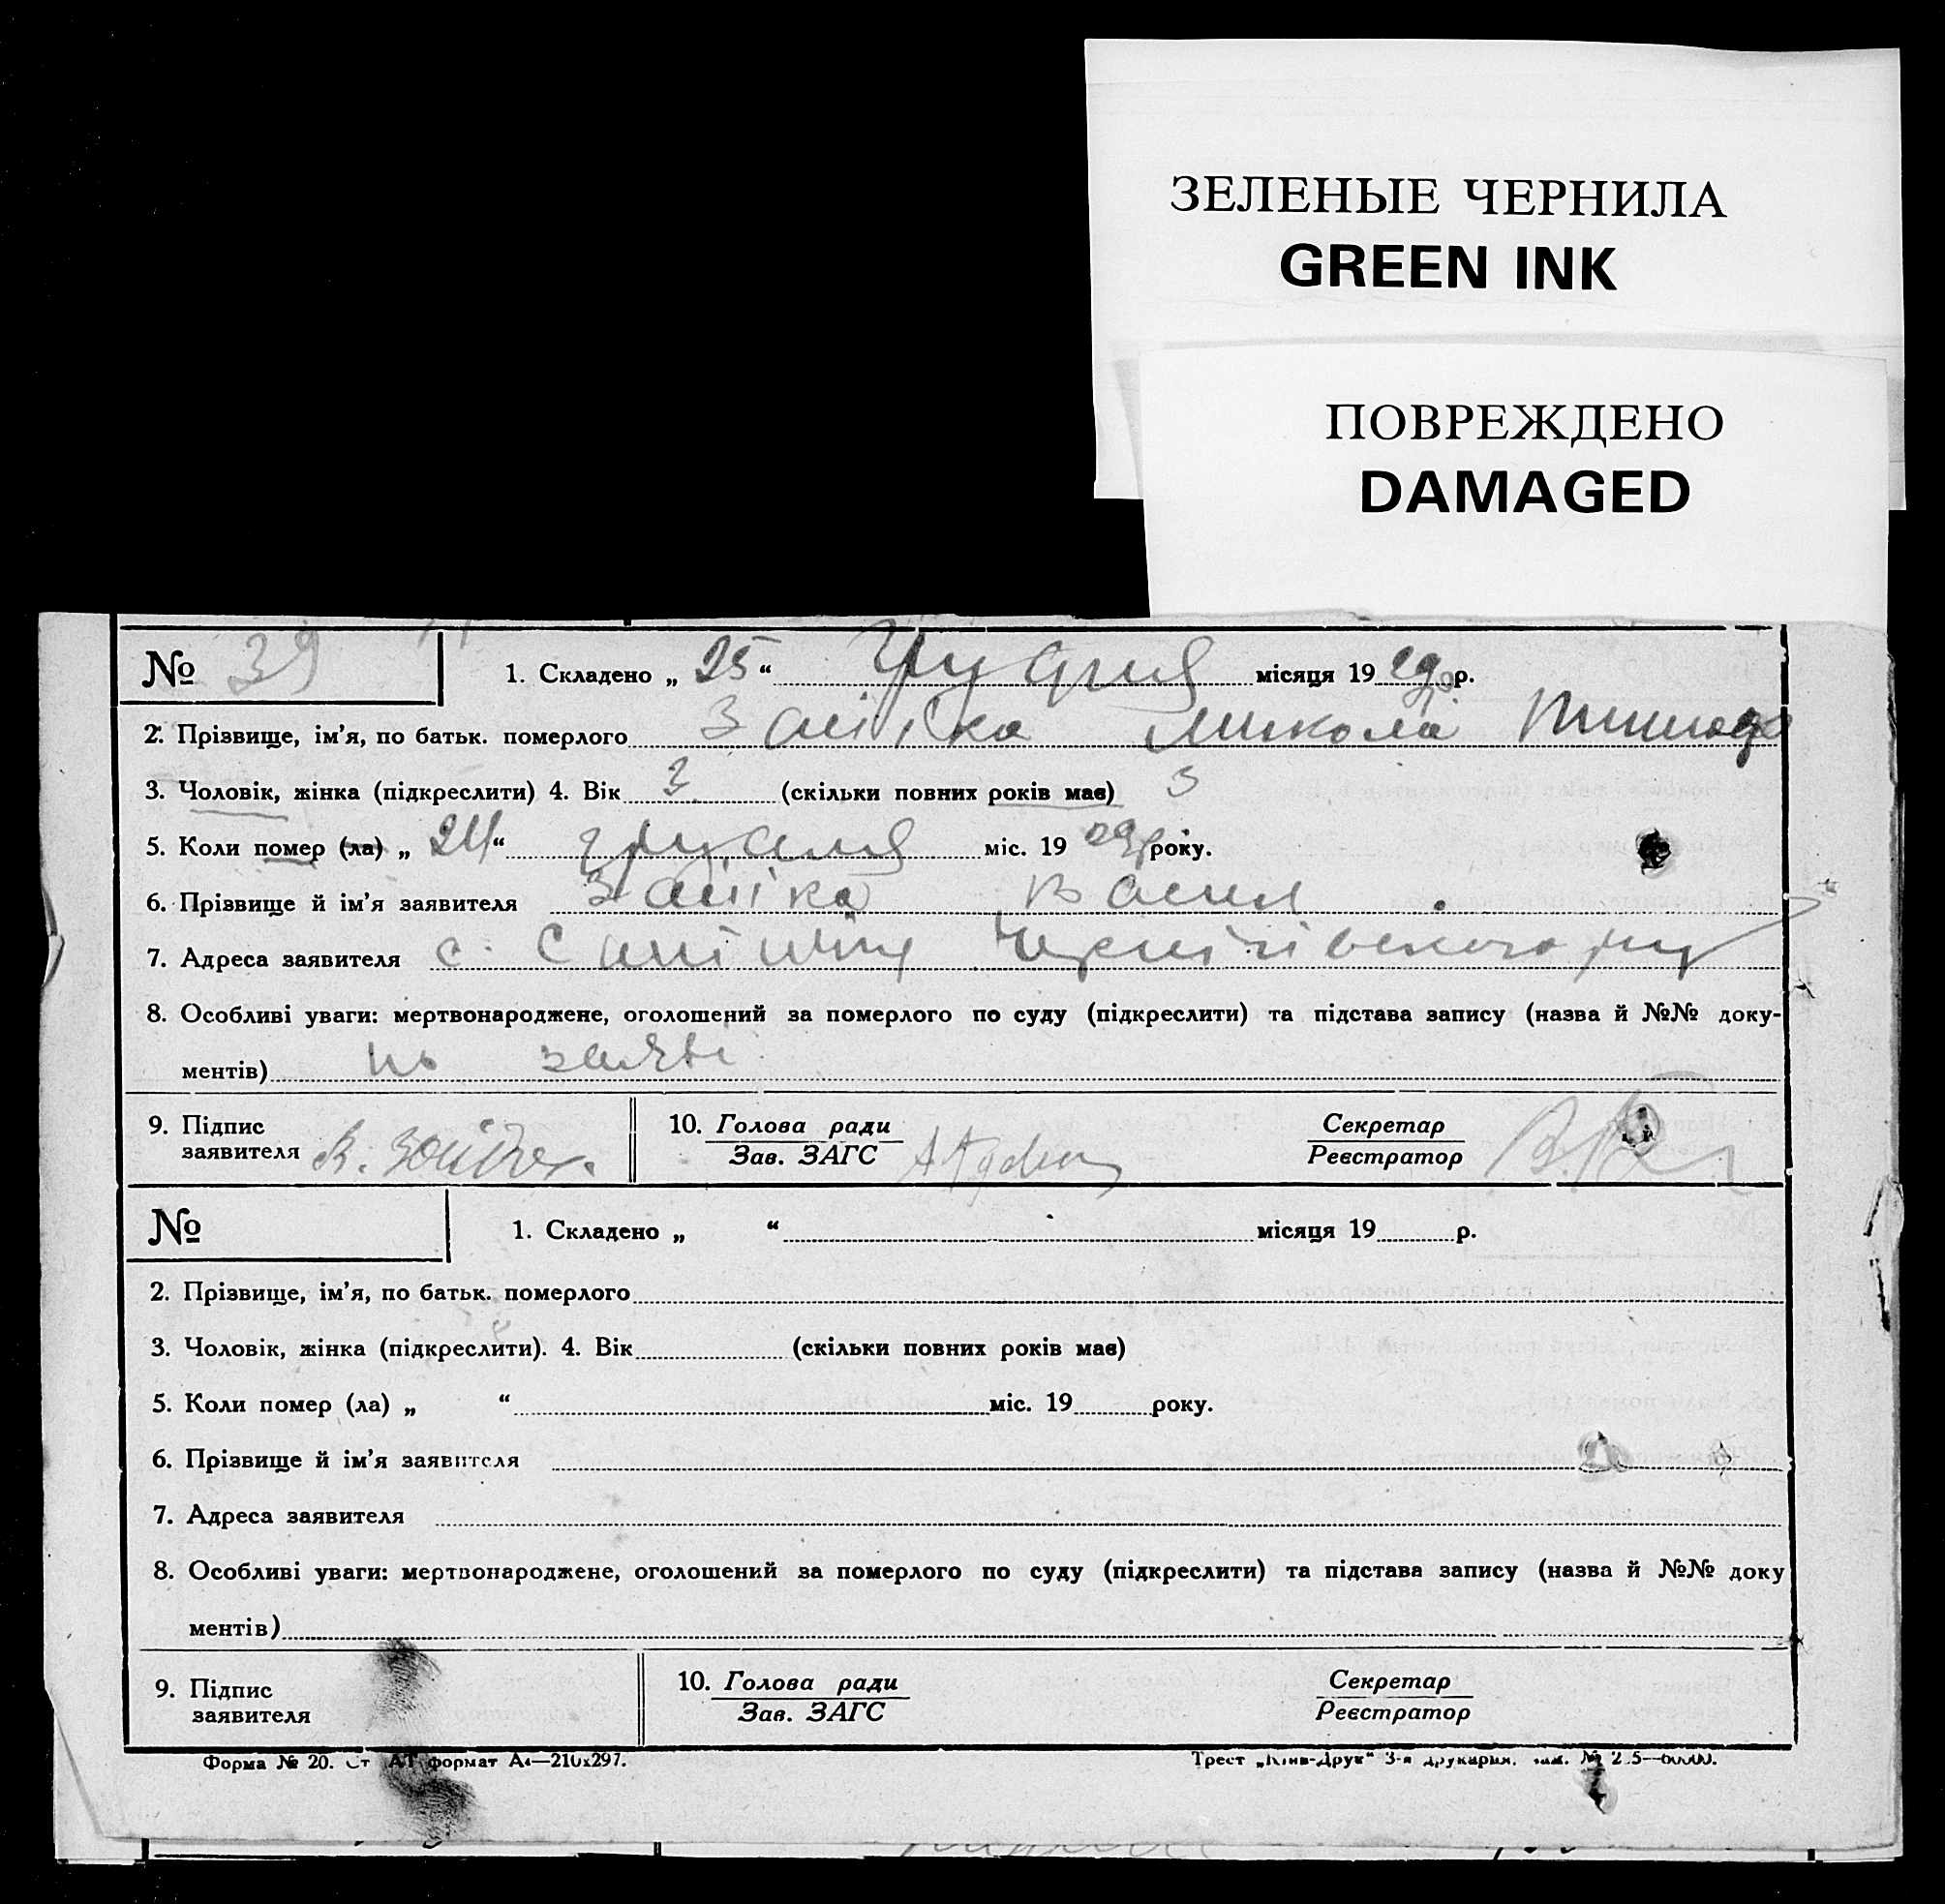 ЗЕЛЕНЫЕ ЧЕРНИЛА
GREEN INK
ПОВРЕЖДЕНО
DAMAGED
№ 39 1. Складено „ 25 “ Грудня місяця 19 29 р.
2. Прізвище, ім’я, по батьк. померлого Заїка Микола
3. Чоловік, жінка (підкреслити) 4. Вік 3 (скільки повних років має) 3
5. Коли помер (ла) „ 24 “ грудня міс. 19 29 року.
6. Прізвище й ім’я заявителя Заїка
7. Адреса заявителя с.
8. Особливі уваги: мертвонароджене, оголошений за померлого по суду (підкреслити) та підстава запису (назва й №№ доку-
ментів) по заяві
9. Підпис заявителя 10. Голова ради Секретар
Зав. ЗАГС Реєстратор
№ 1. Складено „ “ місяця 19 р.
2. Прізвище, ім’я, по батьк. померлого
3. Чоловік, жінка (підкреслити). 4. Вік (скільки повних років має)
5. Коли помер (ла) „ “ міс. 19 року.
6. Прізвище й ім’я заявителя
7. Адреса заявителя
8. Особливі уваги: мертвонароджене, оголошений за померлого по суду (підкреслити) та підстава запису (назва й №№ доку
ментів)
9. Підпис заявителя 10. Голова ради Секретар
Зав. ЗАГС Реєстратор
Форма № 20. формат А4—210х297. Трест „Київ-Друк“ 3-я друкарня.